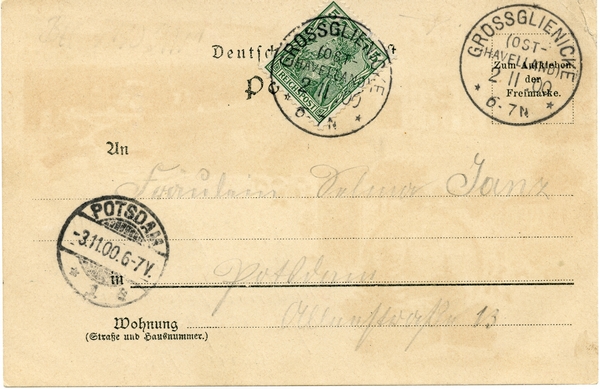 Deutsch
REICHSPOST
GROSSGLIENICKE
(OST-
HAVELLAND)
2.11.00
* 6-7N *
GROSSGLIENICKE
(OST-
HAVELLAND)
2.11.00
* 6-7N *
Zum Aufkleben
der
Freimarke.
An
Fräulein Selma Janz
POTSDAM
-3.11.00.6-7V.
in Potsdam
Wohnung
(Straße und Hausnummer.)
13